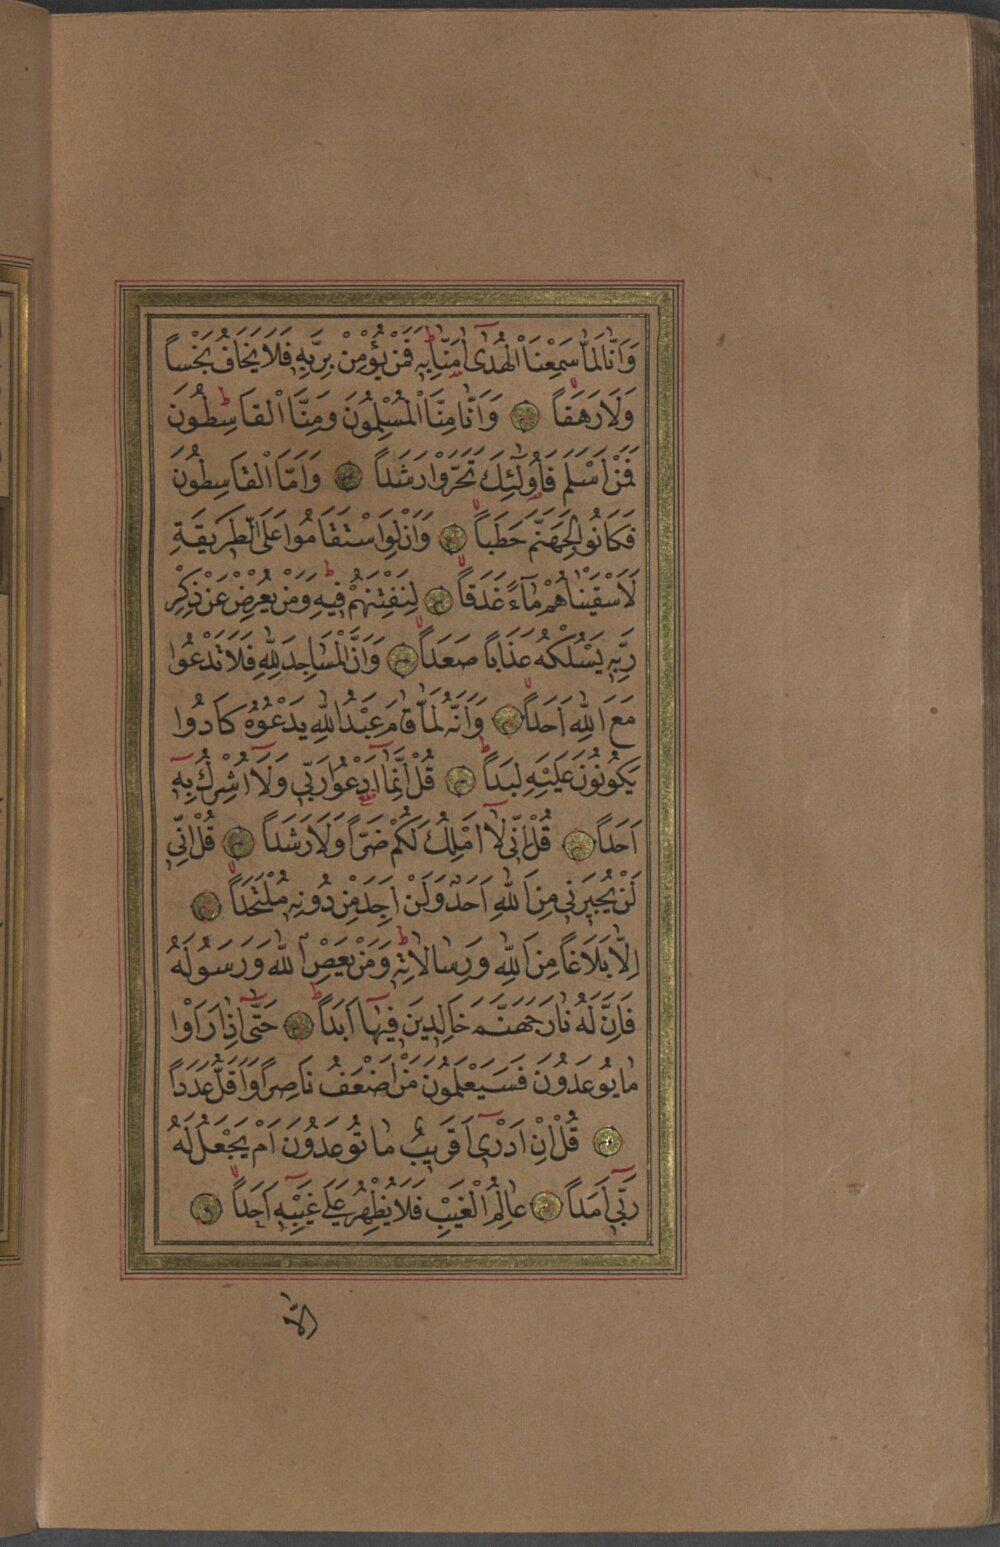 وَاَنَّا لَمَّا سَمِعْنَا الْهُدٰٓى اٰمَنَّا بِه۪ فَمَنْ يُؤْمِنْ بِرَبِّه۪ فَلَا يَخَافُ بَخْساً
وَلَا رَهَقاً وَاَنَّا مِنَّا الْمُسْلِمُونَ وَمِنَّا الْقَاسِطُونَ
فَمَنْ اَسْلَمَ فَاُولٰٓئِكَ تَحَرَّوْا رَشَداً وَاَمَّا الْقَاسِطُونَ
فَكَانُوا لِجَهَنَّمَ حَطَباً وَاَنْ لَوِ اسْتَقَامُوا عَلَى الطَّرِيقَةِ
لَاَسْقَيْنَاهُمْ مَٓاءً غَدَقاً لِنَفْتِنَهُمْ فِيهِ وَمَنْ يُعْرِضْ عَنْ ذِكْرِ
رَبِّه۪ يَسْلُكْهُ عَذَاباً صَعَداً وَاَنَّ الْمَسَاجِدَ لِلّٰهِ فَلَا تَدْعُوا
مَعَ اللّٰهِ اَحَداً وَاَنَّهُ لَمَّا قَامَ عَبْدُ اللّٰهِ يَدْعُوهُ كَادُوا
يَكُونُونَ عَلَيْهِ لِبَداً قُلْ اِنَّمَٓا اَدْعُوا رَبِّي وَلَٓا اُشْرِكُ بِه۪ٓ
اَحَداً قُلْ اِنِّي لَٓا اَمْلِكُ لَكُمْ ضَرّاً وَلَا رَشَداً قُلْ اِنِّي
لَنْ يُجِيرَنِي مِنَ اللّٰهِ اَحَدٌ وَلَنْ اَجِدَ مِنْ دُونِه۪ مُلْتَحَداً
اِلَّا بَلَاغاً مِنَ اللّٰهِ وَرِسَالَاتِه۪ وَمَنْ يَعْصِ اللّٰهَ وَرَسُولَهُ
فَاِنَّ لَهُ نَارَ جَهَنَّمَ خَالِدِينَ فِيهَٓا اَبَداً حَتّٰٓى اِذَا رَاَوْا
مَا يُوعَدُونَ فَسَيَعْلَمُونَ مَنْ اَضْعَفُ نَاصِراً وَاَقَلُّ عَدَداً
قُلْ اِنْ اَدْرِٓي اَقَرِيبٌ مَا تُوعَدُونَ اَمْ يَجْعَلُ لَهُ
رَبِّٓي اَمَداً عَالِمُ الْغَيْبِ فَلَا يُظْهِرُ عَلٰى غَيْبِه۪ٓ اَحَداً
اِلَّا